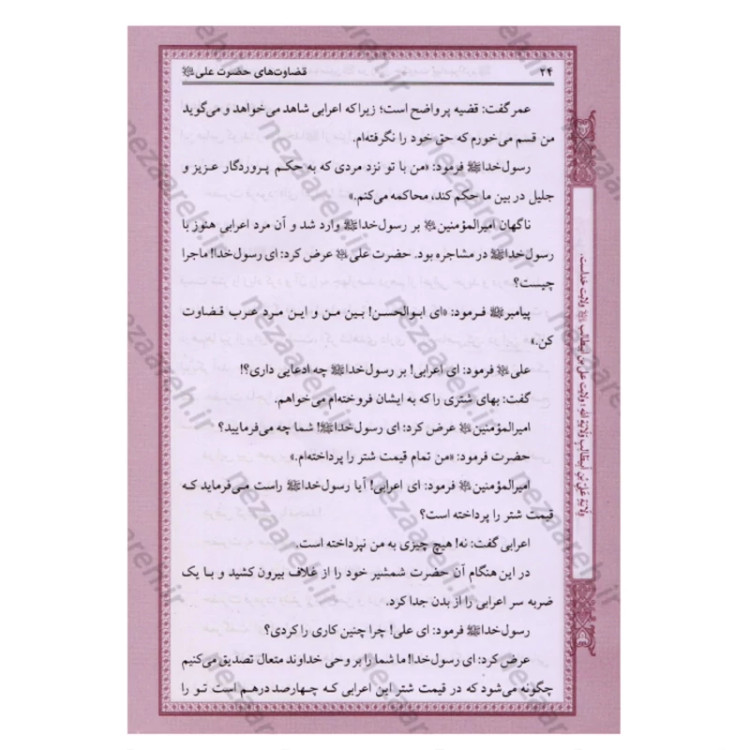 ۲۴
قضاوت‌های حضرت علی
عمر گفت: قضیه پر واضح است؛ زیرا که اعرابی شاهد می‌خواهد و می‌گوید
من قسم می‌خورم که حق خود را نگرفته‌ام.
رسول خداﷺ فرمود: «من با تو نزد مردی که به حکم پروردگار عزیز و
جلیل در بین ما حکم کند، محاکمه می‌کنم.»
ناگهان امیرالمؤمنین بر رسول خداﷺ وارد شد و آن مرد اعرابی هنوز با
رسول خداﷺ در مشاجره بود. حضرت علی عرض کرد: ای رسول خدا! ماجرا
چیست؟
پیامبرﷺ فرمود: «ای ابوالحسن! بین من و این مرد عرب قضاوت
کن.»
علی فرمود: ای اعرابی! بر رسول خداﷺ چه ادعایی داری؟!
گفت: بهای شتری را که به ایشان فروخته‌ام می‌خواهم.
امیرالمؤمنین عرض کرد: ای رسول خداﷺ! شما چه می‌فرمایید؟
حضرت فرمود: «من تمام قیمت شتر را پرداخته‌ام.»
امیرالمؤمنین فرمود: ای اعرابی! آیا رسول خداﷺ راست می‌فرماید که
قیمت شتر را پرداخته است؟
اعرابی گفت: نه! هیچ چیزی به من نپرداخته است.
در این هنگام آن حضرت شمشیر خود را از غلاف بیرون کشید و با یک
ضربه سر اعرابی را از بدن جدا کرد.
رسول خداﷺ فرمود: ای علی! چرا چنین کاری را کردی؟
عرض کرد: ای رسول خدا! ما شما را بر وحی خداوند متعال تصدیق می‌کنیم
چگونه می‌شود که در قیمت شتر این اعرابی که چهارصد درهم است تو را
ولایة علی بن ابیطالب ولایة الله؛ ولایت علی بن ابیطالب ولایت خداست.
nezaareh.ir